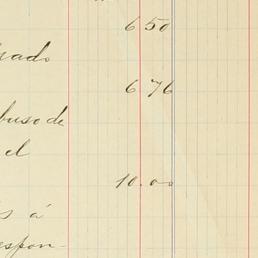 6 50
sado
6 76
buso de
el
10.00
s á
espon-